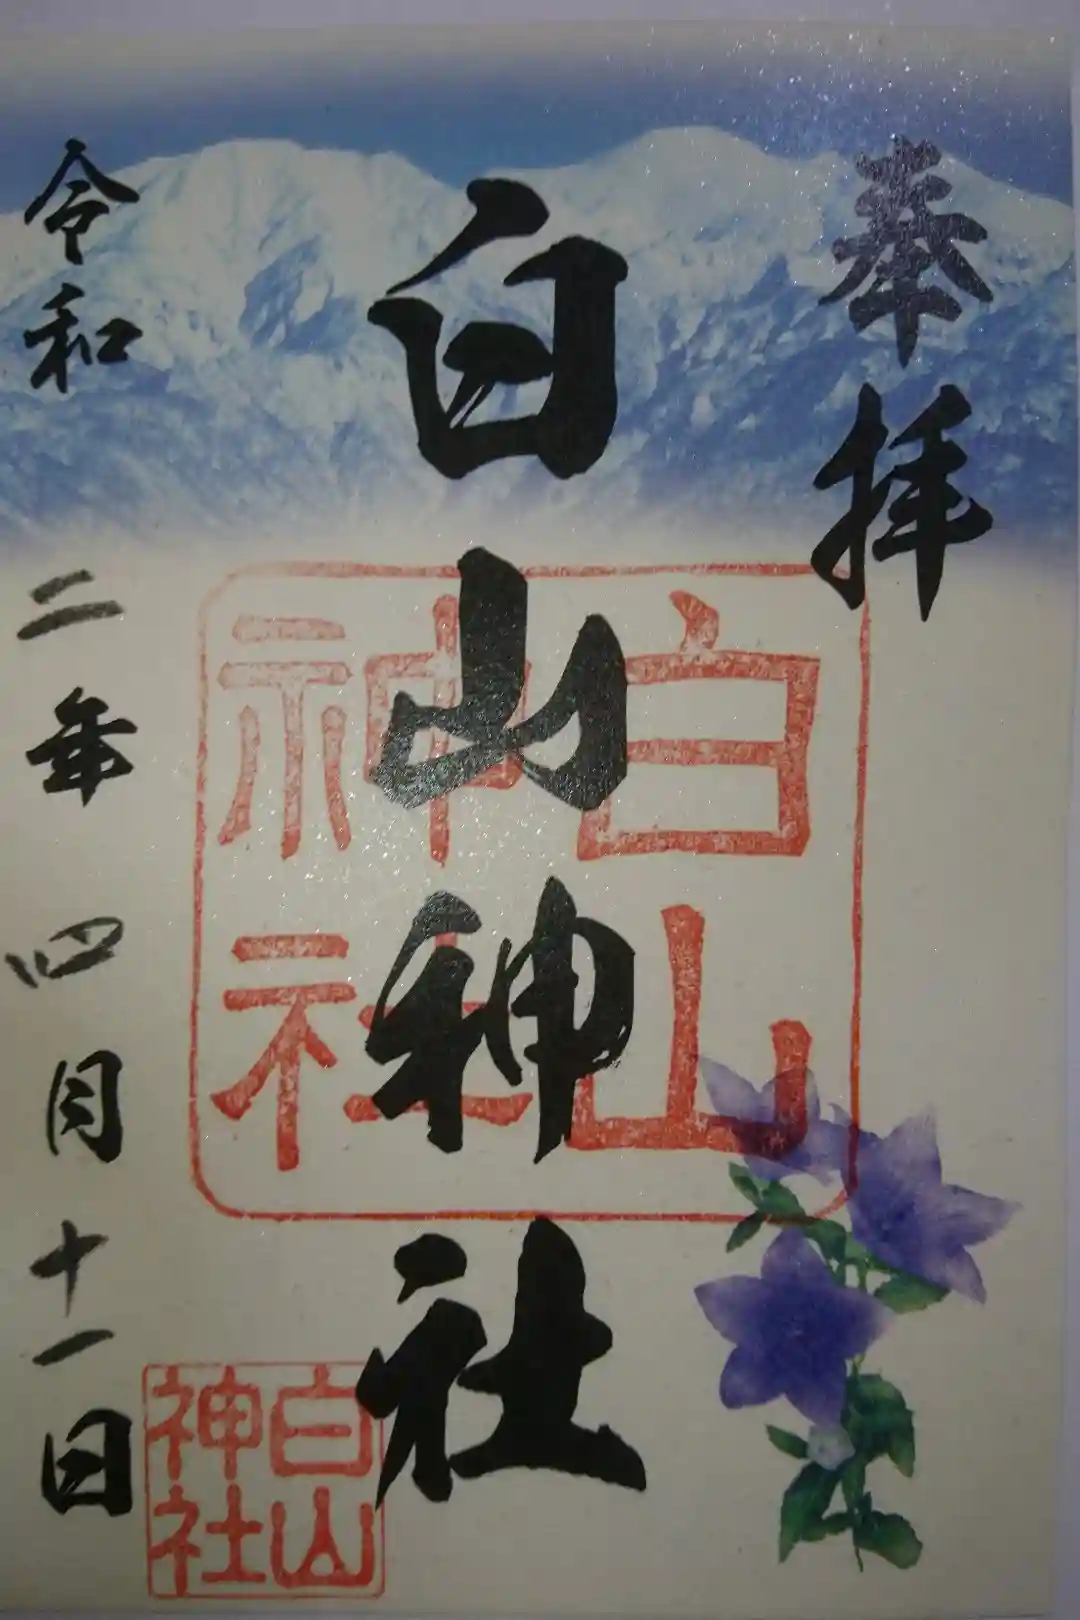 奉拝
白山神社
白山
神社
令和二年四月十一日
白山
神社